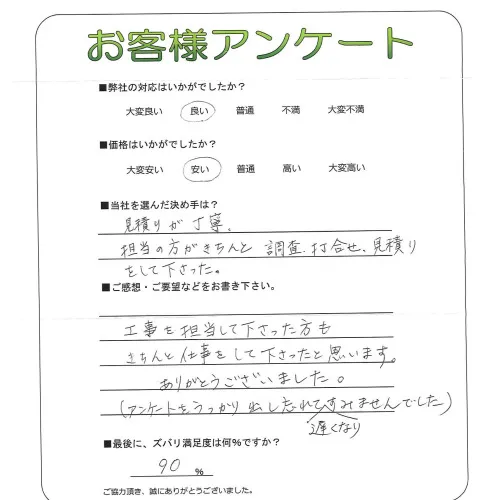 お客様アンケート
■弊社の対応はいかがでしたか？
大変良い 良い 普通 不満 大変不満
■価格はいかがでしたか？
大変安い 安い 普通 高い 大変高い
■当社を選んだ決め手は？
見積りが丁寧、
担当の方がきちんと 調査、打合せ、見積り
をして下さった。
■ご感想・ご要望などをお書き下さい。
工事を担当して下さった方も
きちんと仕事をして下さったと思います。
ありがとうございました。
(アンケートをうっかり出し忘れてすみませんでした)
遅くなり
■最後に、ズバリ満足度は何％ですか？
90 ％
ご協力頂き、誠にありがとうございました。